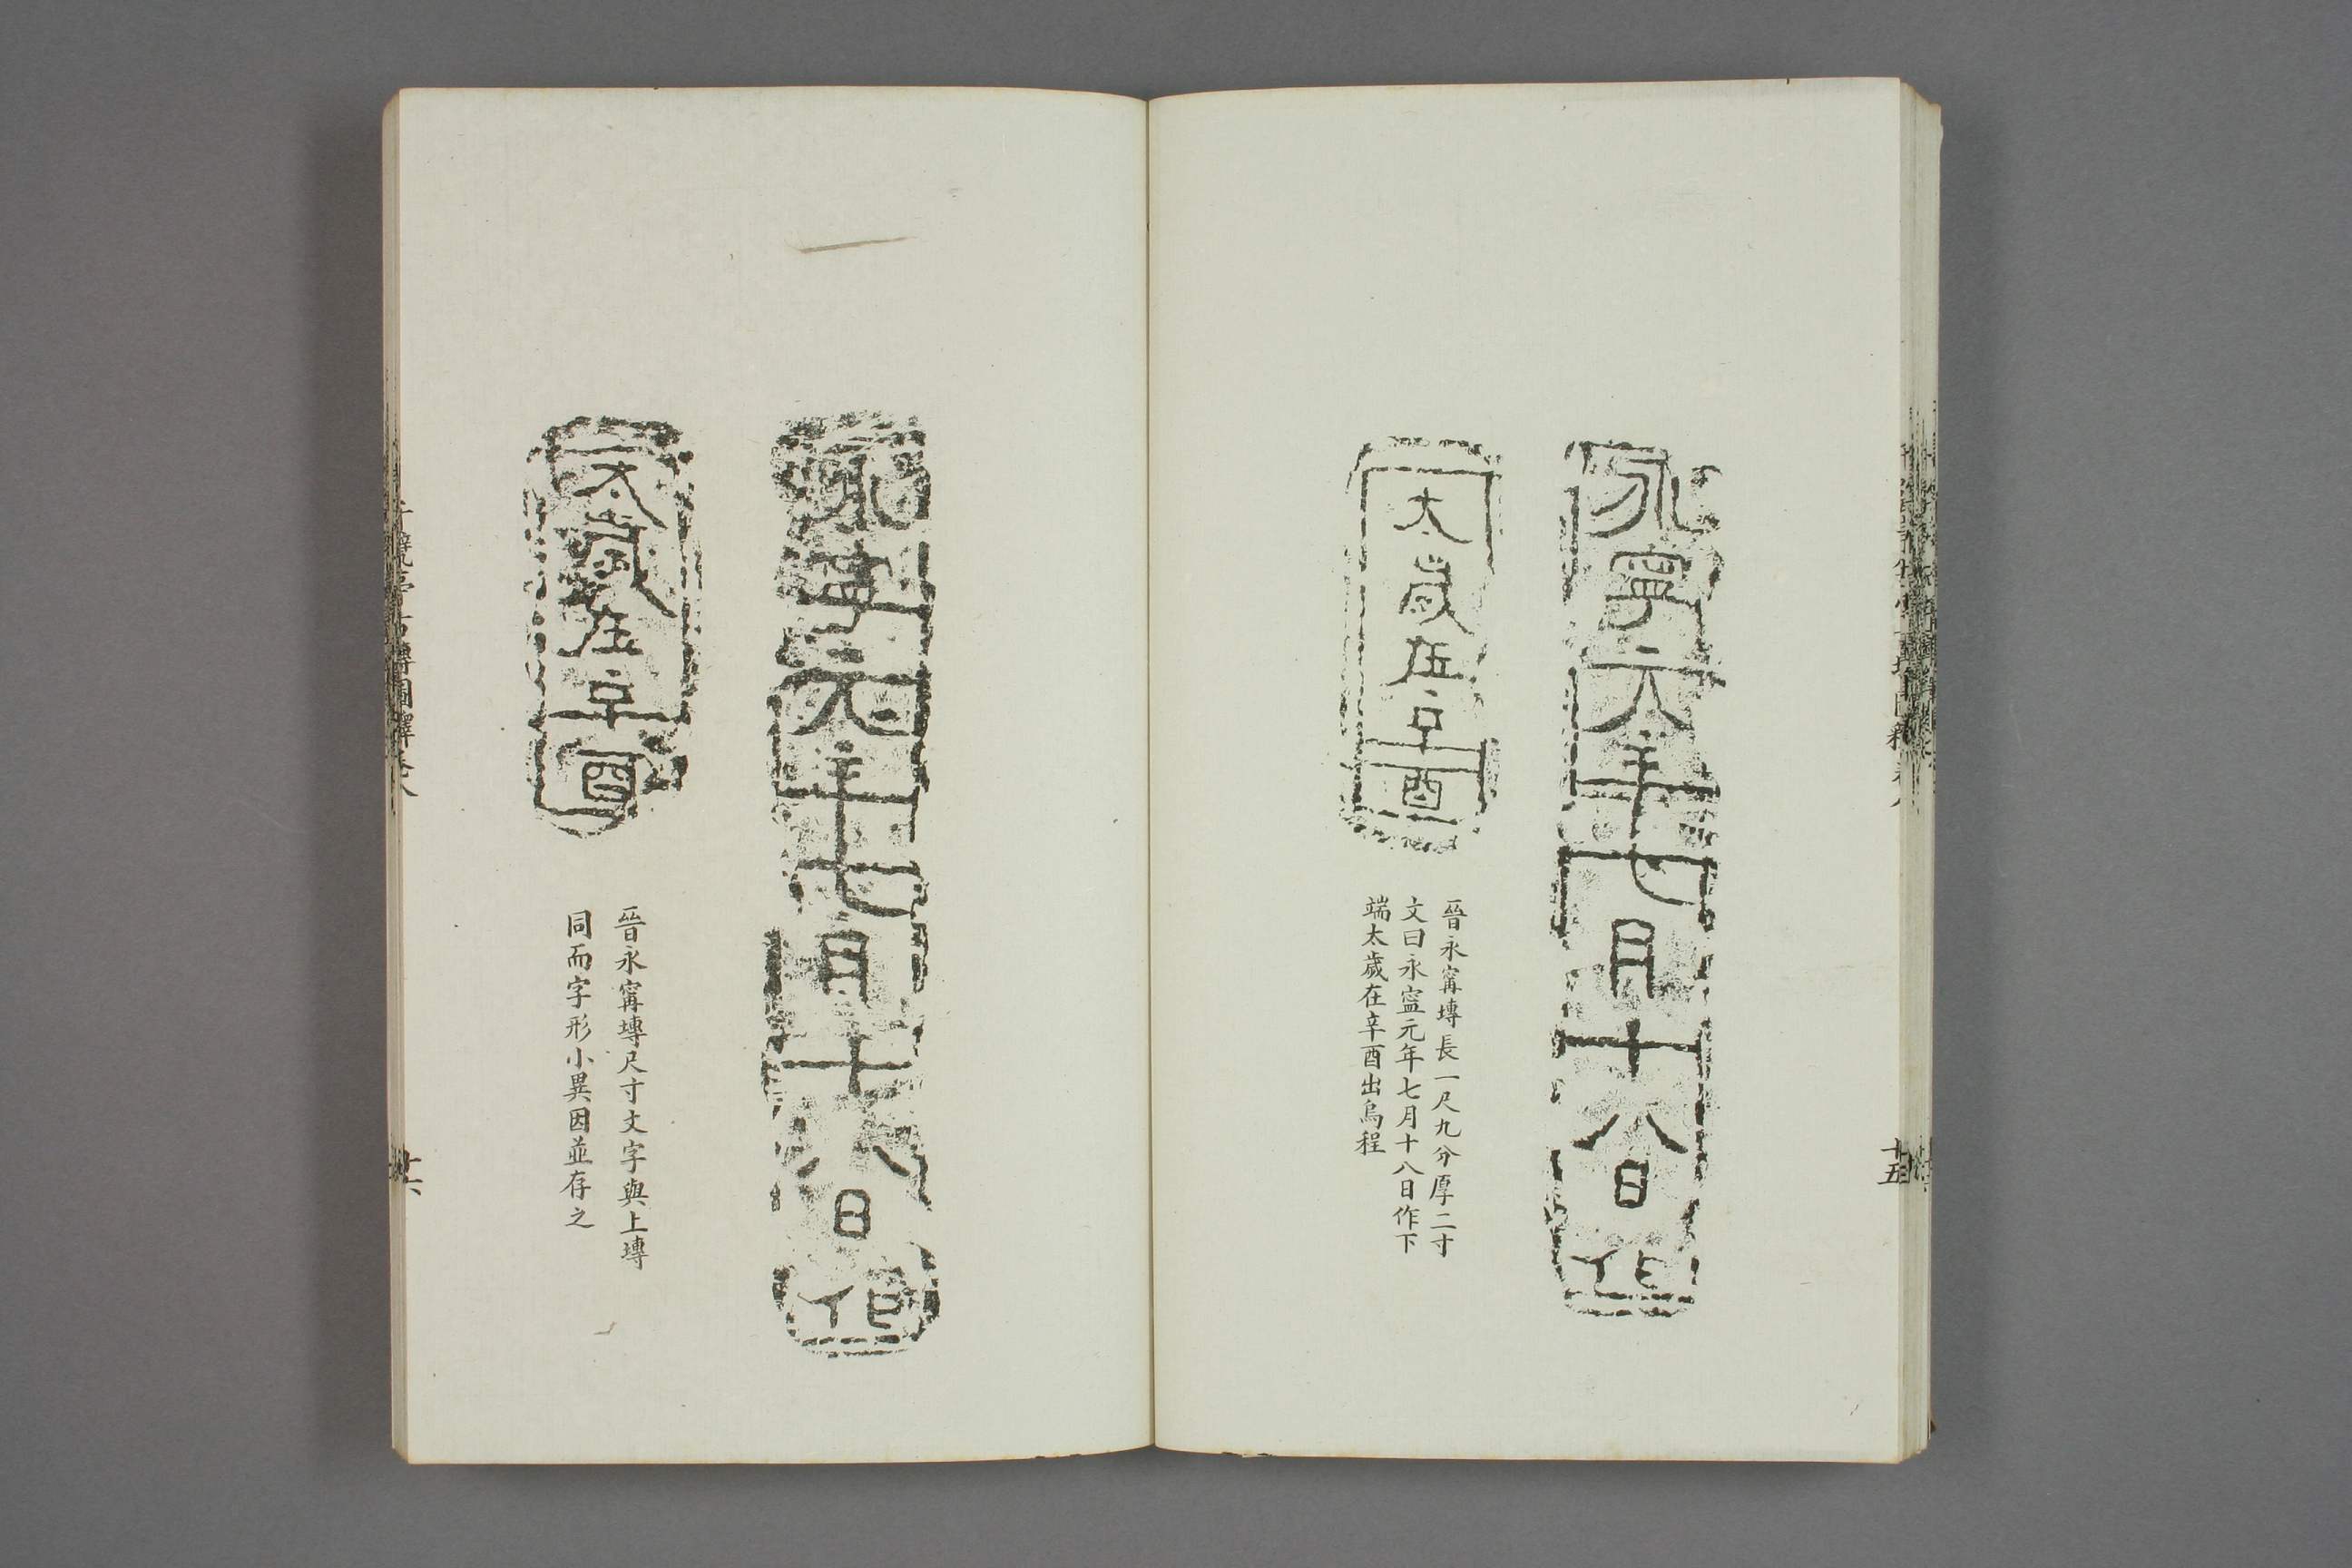 永寧元年七月十八日作
太歲在辛酉
晉永甯塼長一尺九分厚二寸
文曰永寍元年七月十八日作下
端太歲在辛酉出烏程
十五
永寧元年七月十八日作
太歲在辛酉
晉永甯塼尺寸文字與上塼
同而字形小異因並存之
千甓亭古塼圖釋卷八
十六